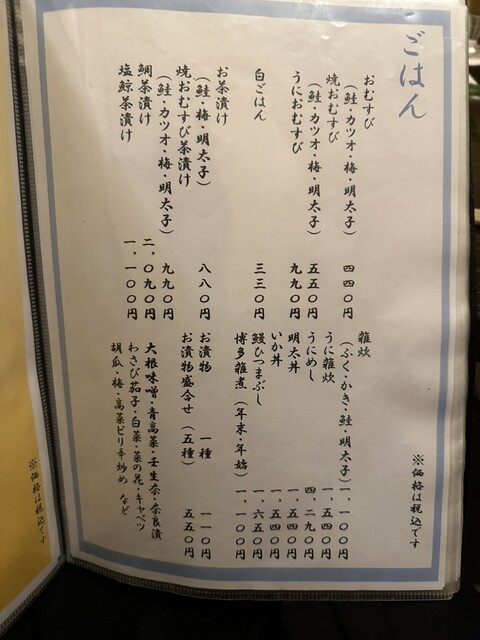 ごはん
おむすび
（鮭・カツオ・梅・明太子）　四四〇円
焼おむすび
（鮭・カツオ・梅・明太子）　五五〇円
うにおむすび　九九〇円
白ごはん　三三〇円
お茶漬け
（鮭・梅・明太子）　八八〇円
焼おむすび茶漬け
（鮭・カツオ・梅・明太子）　九九〇円
鯛茶漬け　二、〇九〇円
塩鯨茶漬け　一、一〇〇円
雑炊
（ふく・かき・鮭・明太子）　一、一〇〇円
うに雑炊　一、五四〇円
うにめし　四、二九〇円
明太丼　一、五四〇円
いか丼　一、五四〇円
鰻ひつまぶし　一、六五〇円
博多雑煮（年末・年始）　一、一〇〇円
お漬物　一種　一一〇円
お漬物盛合せ（五種）　五五〇円
大根味噌・青高菜・壬生奈・奈良漬
わさび茄子・白菜・菜の花・キャベツ
胡瓜・梅・高菜ピリ辛炒め　など
※価格は税込です
※価格は税込です